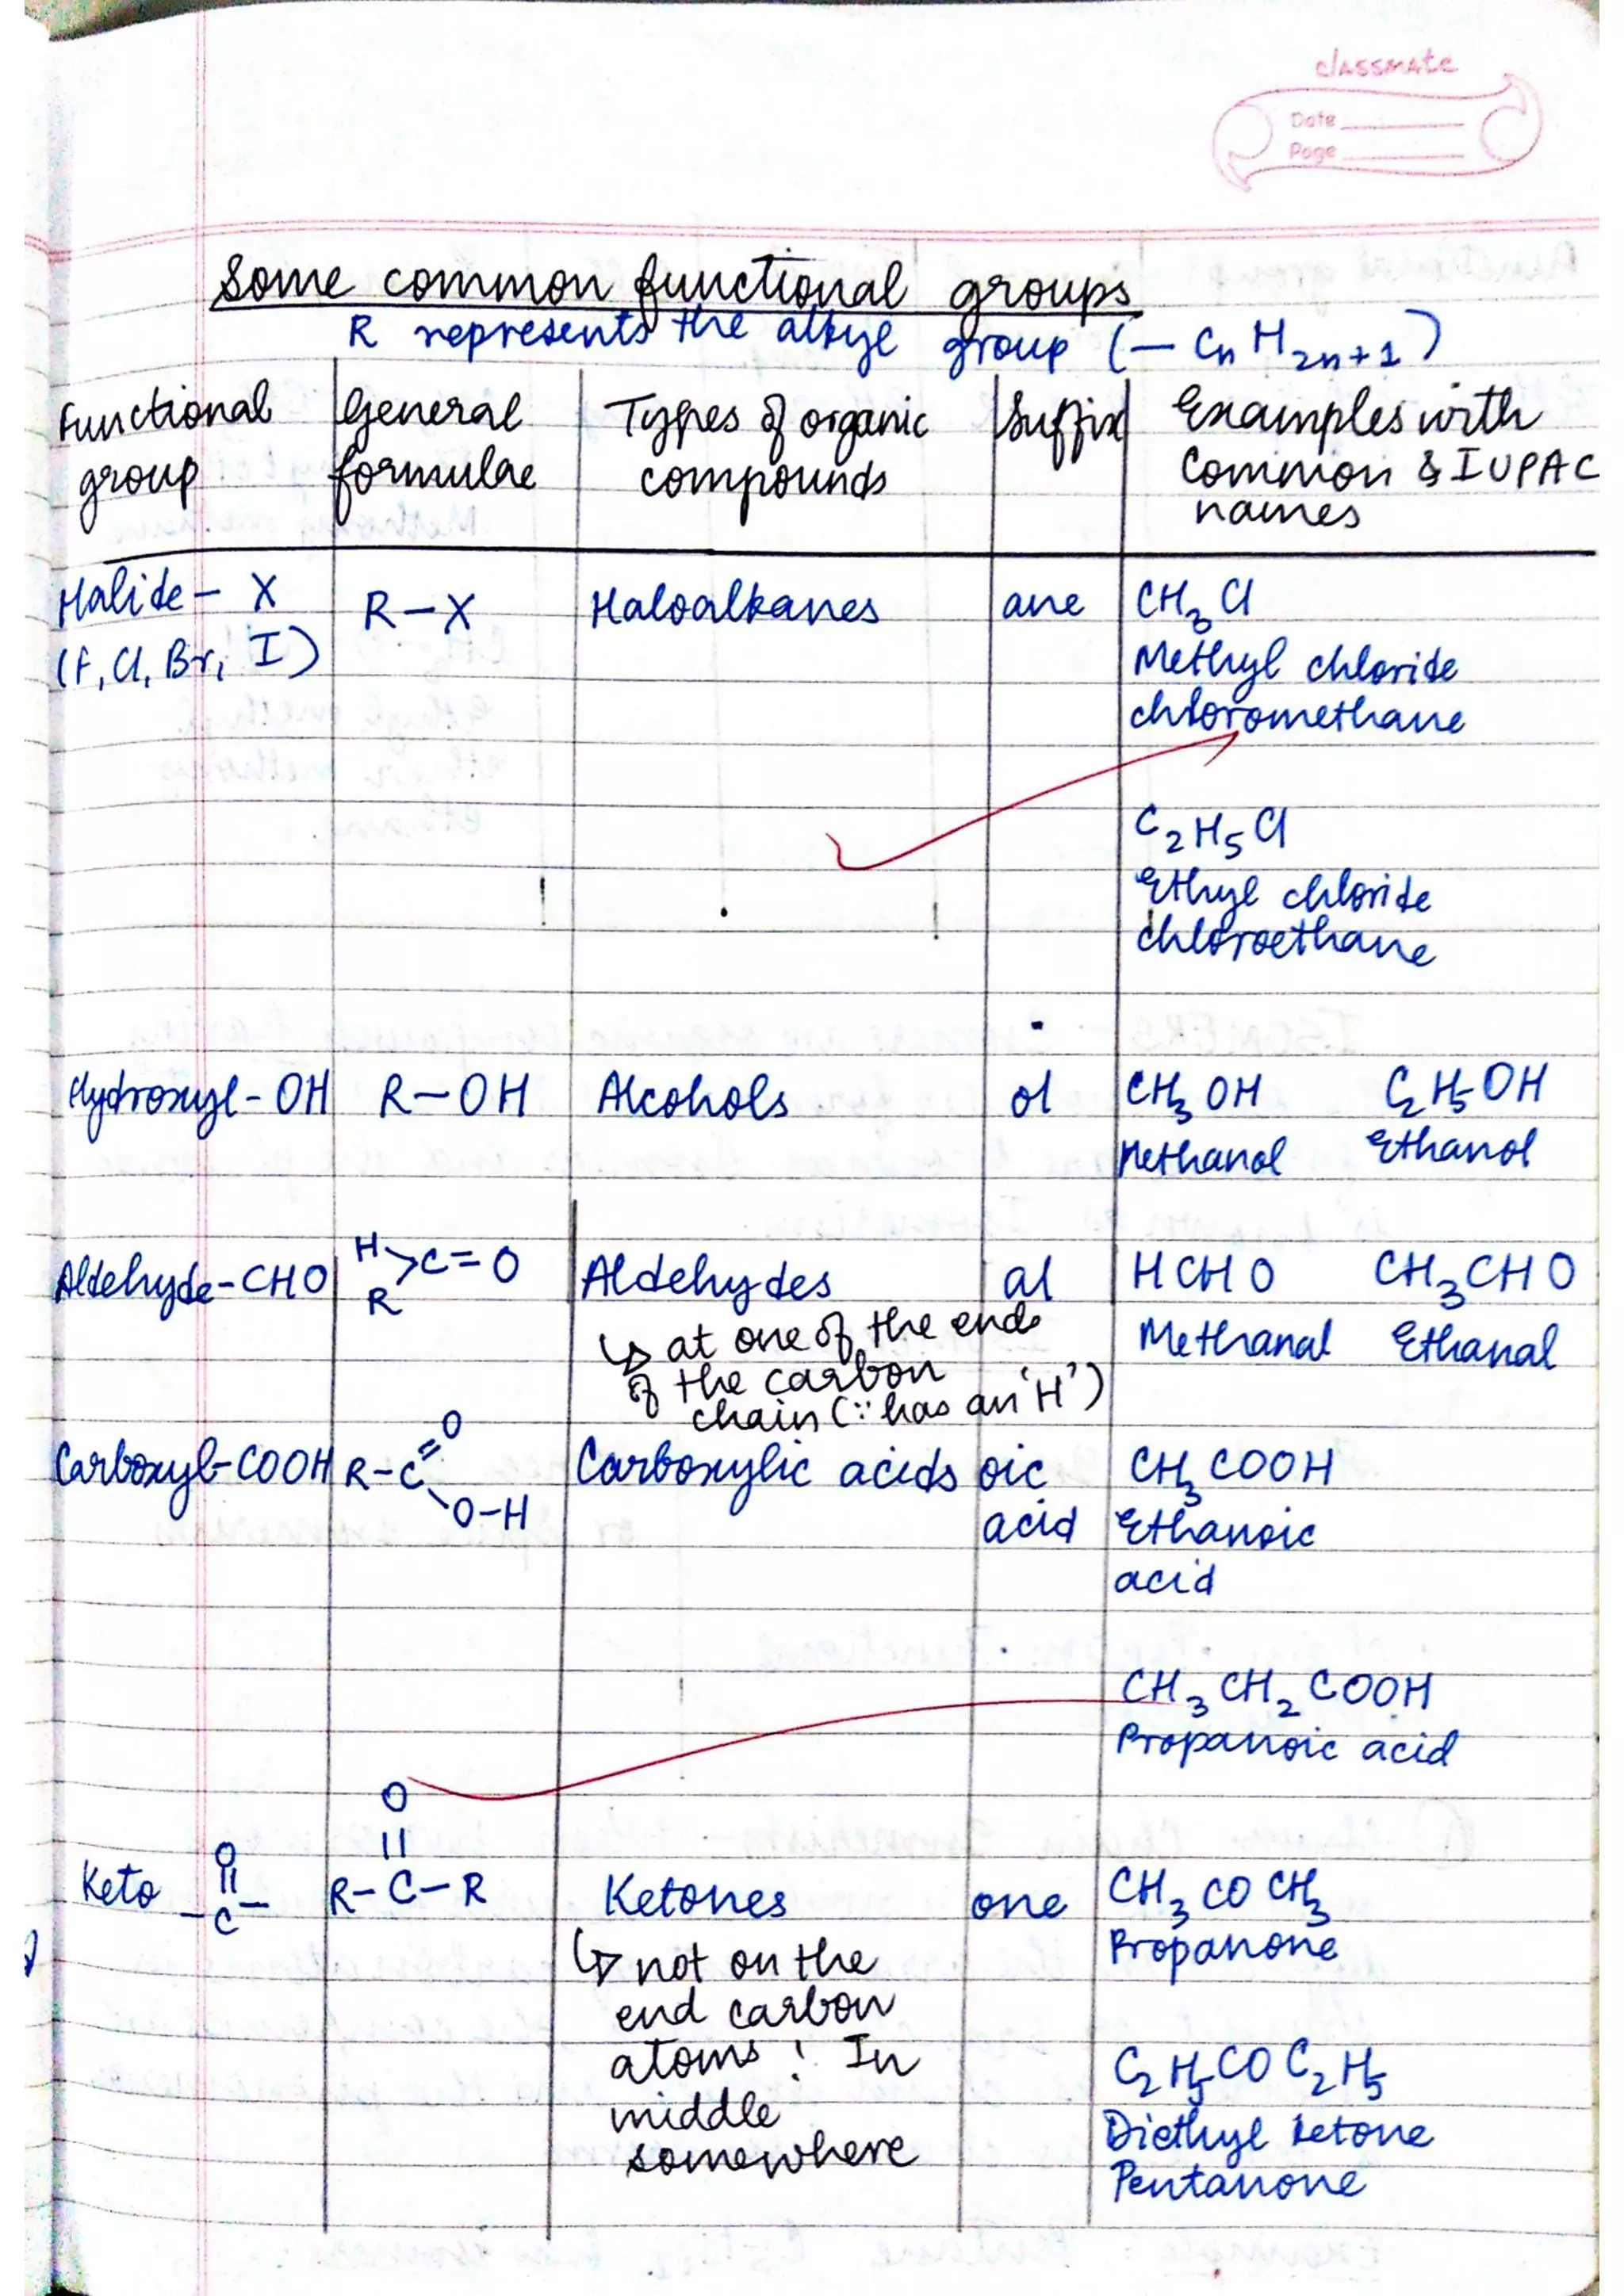 classmate
Date
Page
Some common functional groups
R represents the alkyl group (– CnH2n+1)
Functional group | General formulae | Types of organic compounds | Suffix | Examples with common & IUPAC names
Halide – X | R–X | Haloalkanes | ane | CH3Cl
(F, Cl, Br, I) | Methyl chloride
chloromethane
C2H5Cl
Ethyl chloride
chloroethane
Hydroxyl-OH | R–OH | Alcohols | ol | CH3OH C2H5OH
Methanol Ethanol
Aldehyde-CHO | H R >C=O | Aldehydes | al | HCHO CH3CHO
↳ at one of the ends | Methanal Ethanal
of the carbon
chain (∵ has an 'H')
Carboxyl-COOH | R–C=O O–H | Carboxylic acids | oic acid | CH3COOH
Ethanoic
acid
CH3CH2COOH
Propanoic acid
Keto O || –C– | O || R–C–R | Ketones | one | CH3COCH3
↳ not on the | Propanone
end carbon
atoms! In | C2H5COC2H5
middle | Diethyl ketone
somewhere | Pentanone